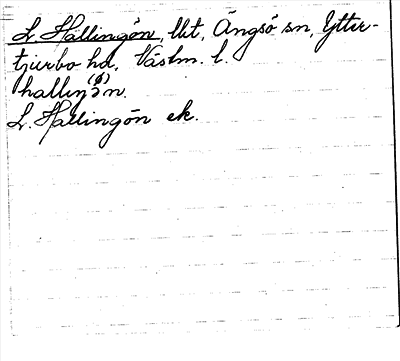 L. Hällingön, lkt, Ängsö sn, Ytter-
tjurbo hd. Västm. l.
L. Hallingön ek.